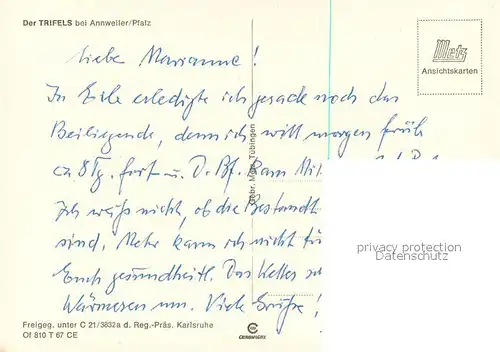 Der TRIFELS bei Annweiler/Pfalz
Metz
Ansichtskarten
Liebe Marianne!
In Eile erledigte ich gerade noch das
Beiliegende, denn ich will morgen früh
ca 8 Tg. fort u. D. Bf. kam
Ich weiß nicht, ob die Bestandt
sind. Mehr kann ich nicht fü
Euch gesundheitl. Das
Wärmesen um. Viele Grüße!
Gebr. Metz, Tübingen
privacy protection
Datenschutz
Freigeg. unter C 21/3832a d. Reg.-Präs. Karlsruhe
Of 810 T 67 CE